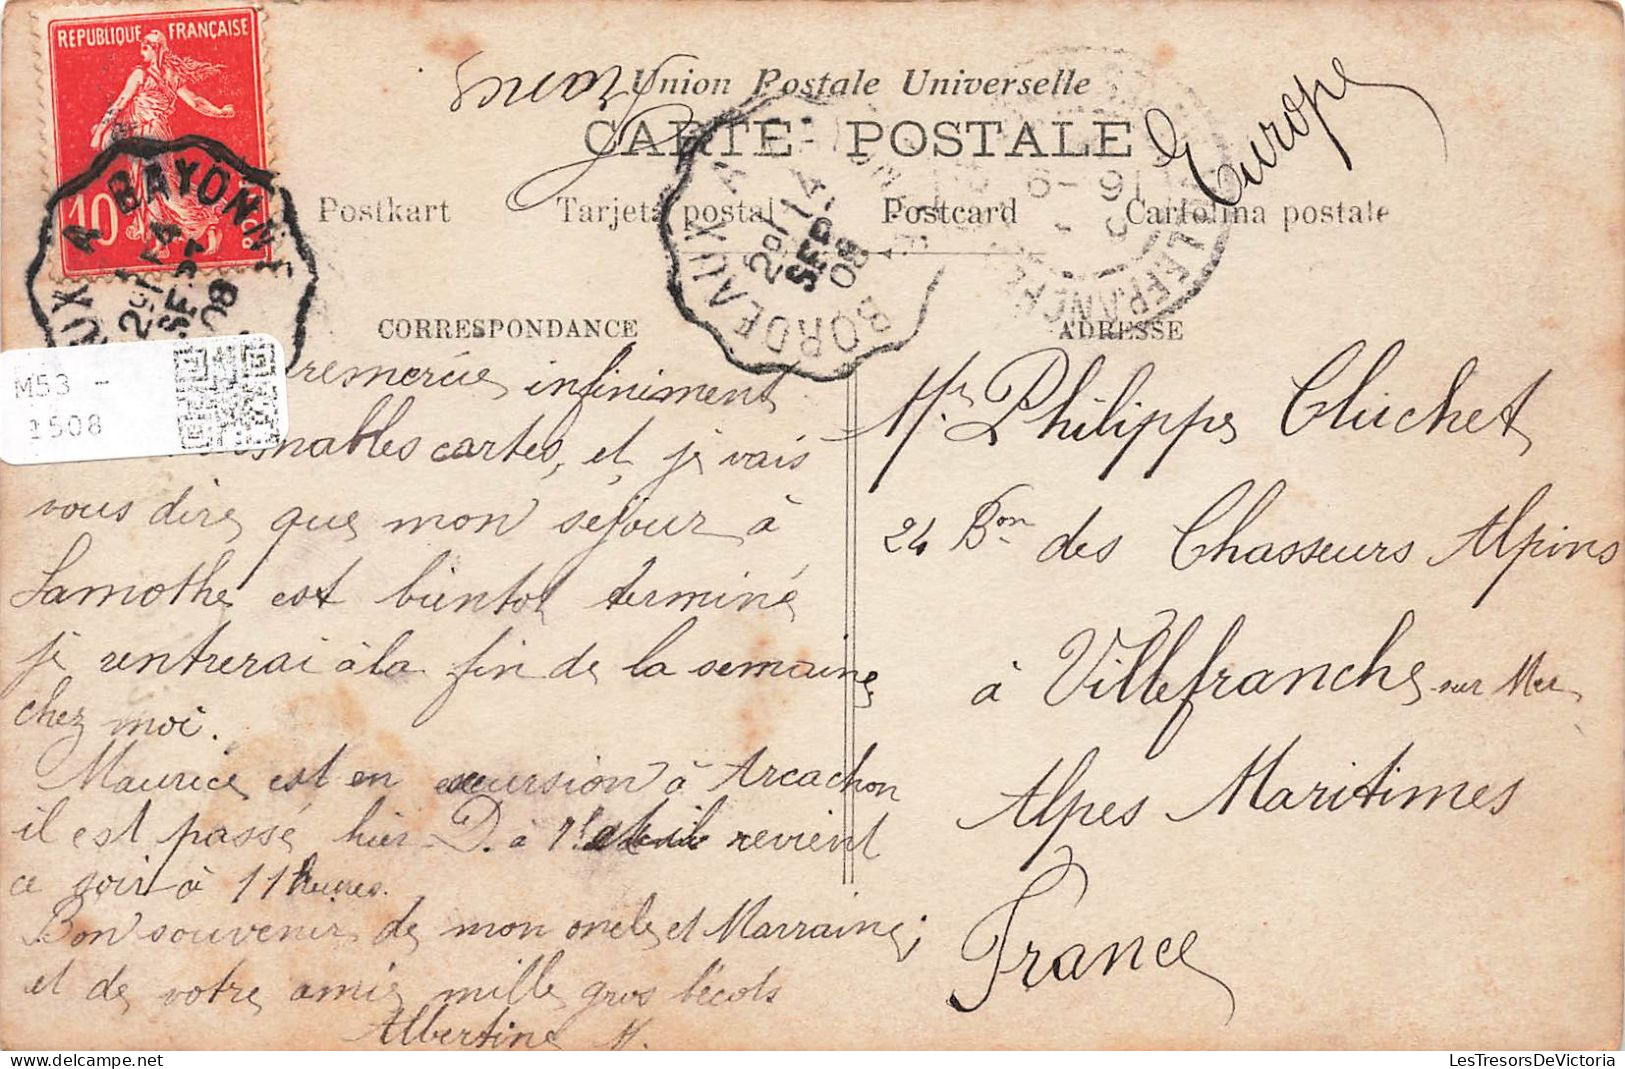 REPUBLIQUE FRANÇAISE
10
BORDEAUX A BAYONNE
14
SEPT
08
France
Union Postale Universelle
CARTE POSTALE
Europe
Postkart Tarjeta postal Postcard Cartolina postale
CORRESPONDANCE
ADRESSE
M53 -
1508
remercie infiniment
cartes, et je vais
vous dire que mon séjour à
Lamothe est bientot terminé
je rentrerai à la fin de la semaine
chez moi.
Maurice est en excursion à Arcachon
il est passé hier D. à et il revient
ce soir à 11 heures.
Bon souvenir de mon oncle et Marraine;
et de votre amie mille gros bécots
Albertine M.
Mr Philippe Cluchet
24 Bon des Chasseurs Alpins
à Villefranche sur Mer
Alpes Maritimes
France
LesTresorsDeVictoria